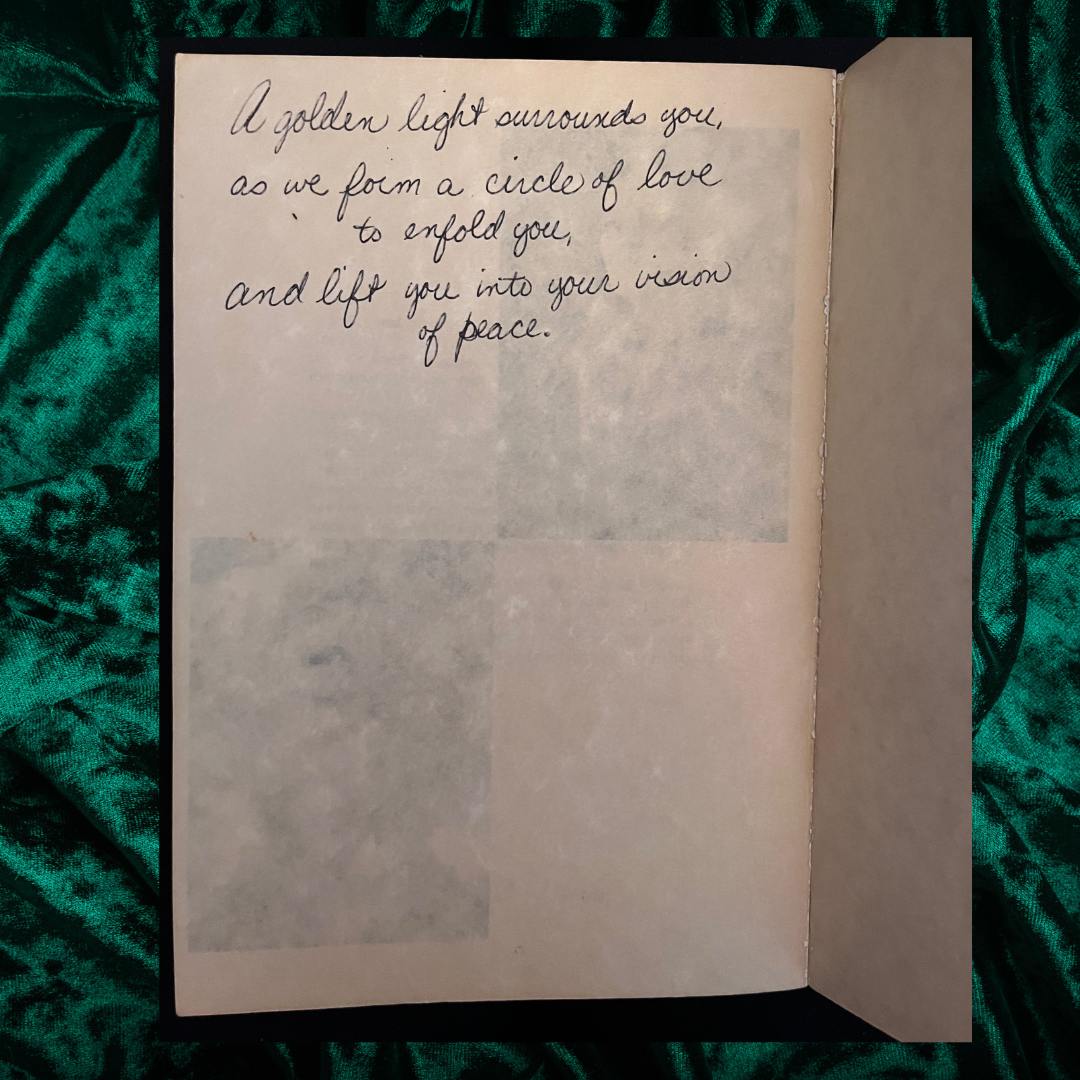 A golden light surrounds you,
as we form a circle of love
to enfold you,
and lift you into your vision
of peace.